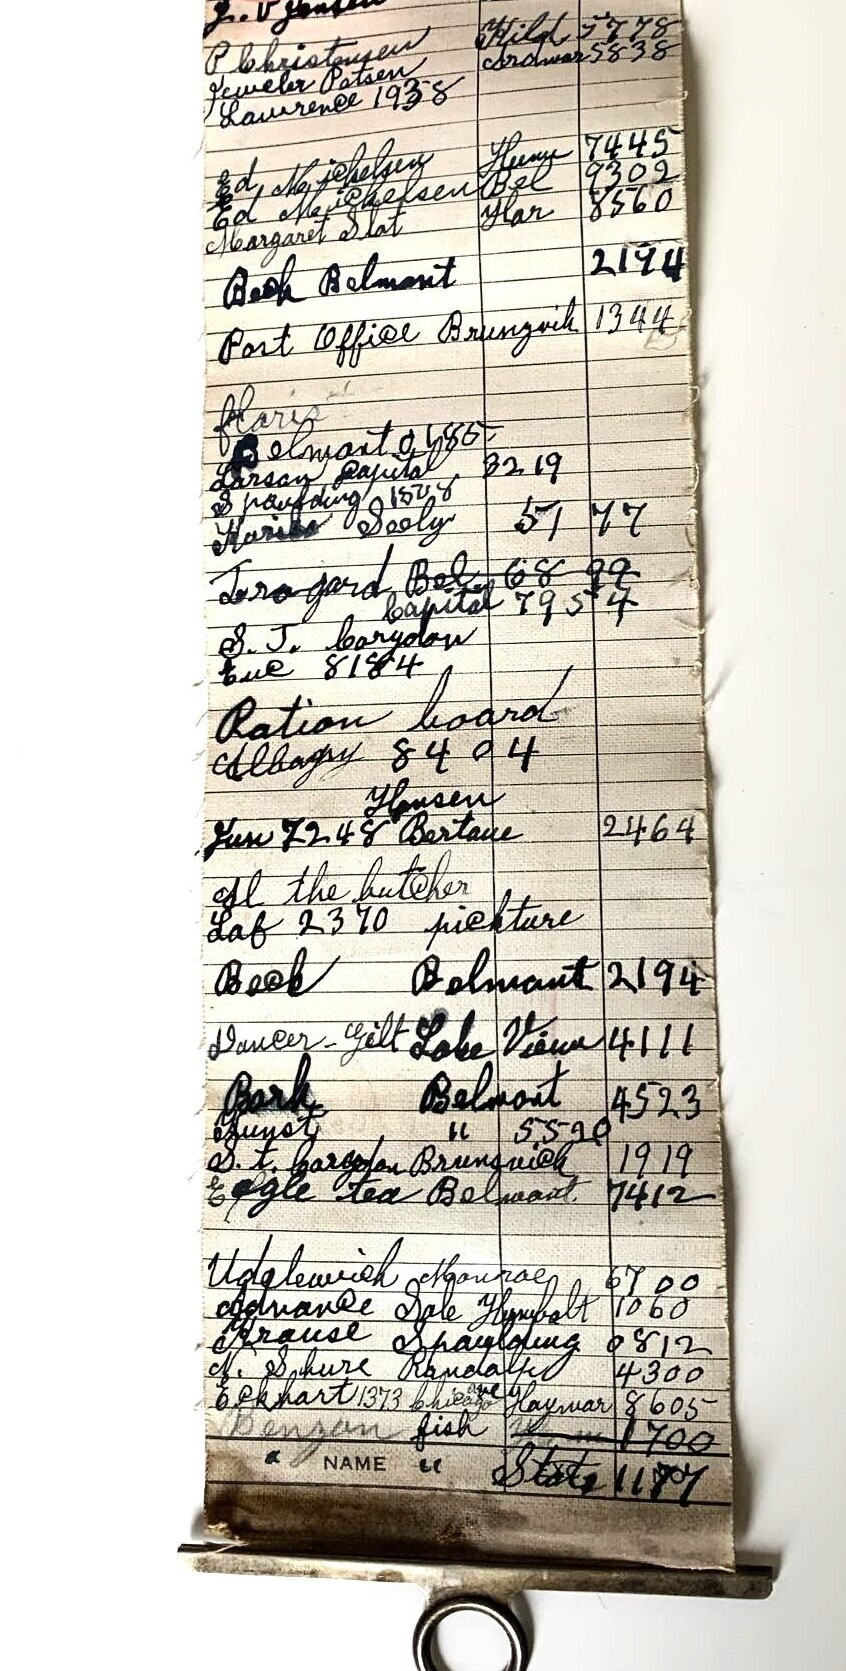 P Christensen Hild 5778
Jeweler Patsen Ardmar 5838
Lawrence 1938
Ed Michelsen 7445
Ed Michelsen Bel 9302
Margaret Slat Har 8560
Beck Belmont 2194
Post Office Brungvik 1344
floris
Belmont 0185
Larson Capital 3219
Spaulding
Seely 5177
Bel 6899
Capital 7954
S. T. Corydon
Eue 8184
Ration board
Albany 8404
Hansen
Jun 7248 Bertaue 2464
Al the butcher
Laf 2370 pickture
Beck Belmont 2194
Dancer - Gilt Lake View 4111
Bark Belmont 4523
" 5520
S. t. Corydon Brunsvick 1919
Eagle tea Belmont 7412
Monroe 6700
Advance Sale Humbolt 1060
Krause Spaulding 0812
N. Shure Randalf 4300
Eckhart 1373 Chicago ave Haymar 8605
Benzon fish 1700
" NAME " State